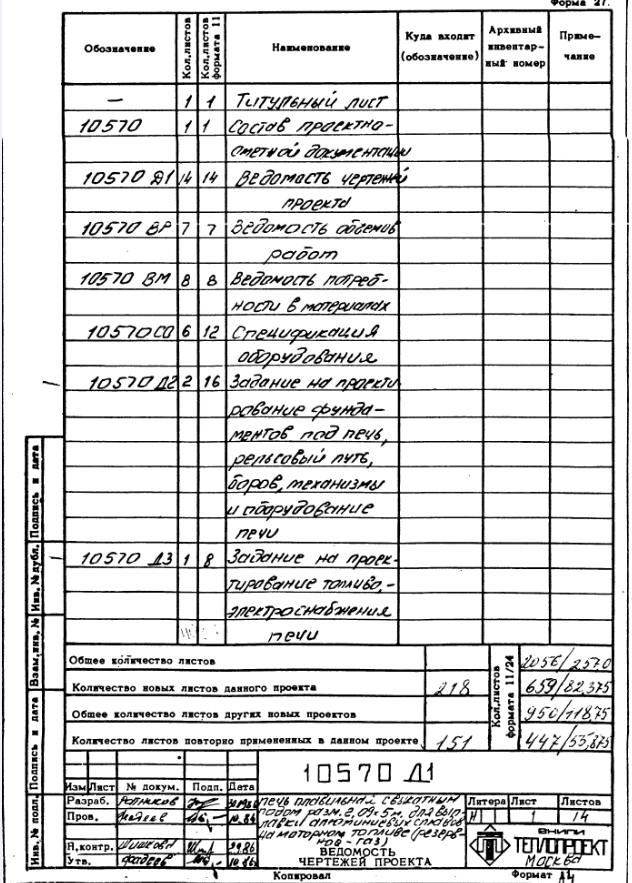 Форма 27.
Обозначение Кол.листов Кол.листов формата 11 Наименование Куда входит (обозначение) Архивный инвентар-ный номер Приме-чание
— 1 1 Титульный лист
10570 1 1 Состав проектно-
сметной документации
10570 Д1 14 14 Ведомость чертежей
проекта
10570 ВР 7 7 Ведомость объемов
работ
10570 ВМ 8 8 Ведомость потреб-
ности в материалах
10570 СО 6 12 Спецификация
оборудования
10570 Д2 2 16 Задание на проекти
рование фунда-
ментов под печь,
рельсовый путь,
боров, механизмы
и оборудование
печи
10570 Д3 1 8 Задание на проек-
тирование топливо,-
электроснабжения
печи
Общее количество листов 2056/257.0
Количество новых листов данного проекта 218 659/82,375
Общее количество листов других новых проектов 950/118,75
Количество листов повторно примененных в данном проекте 151 447/55,875
Кол.листов формата 11/24
10570 Д1
Изм Лист № докум. Подп. Дата
Разраб. Ратников
Пров. Фадеев 10.86
Н.контр. Шишкова 29.86
Утв. Фадеев 10.86
Печь плавильная с выкатным
подом разм. 2,09×5 м, для вып-
лавки алюминиевых сплавов
на моторном топливе (резерв-
ное - газ)
ВЕДОМОСТЬ
ЧЕРТЕЖЕЙ ПРОЕКТА
Литера Лист Листов
Н 1 14
ВНИПИ
ТЕПЛОПРОЕКТ
МОСКВА
Копировал Формат А4
Инв. № подл. Подпись и дата Взам.инв. № Инв. № дубл. Подпись и дата